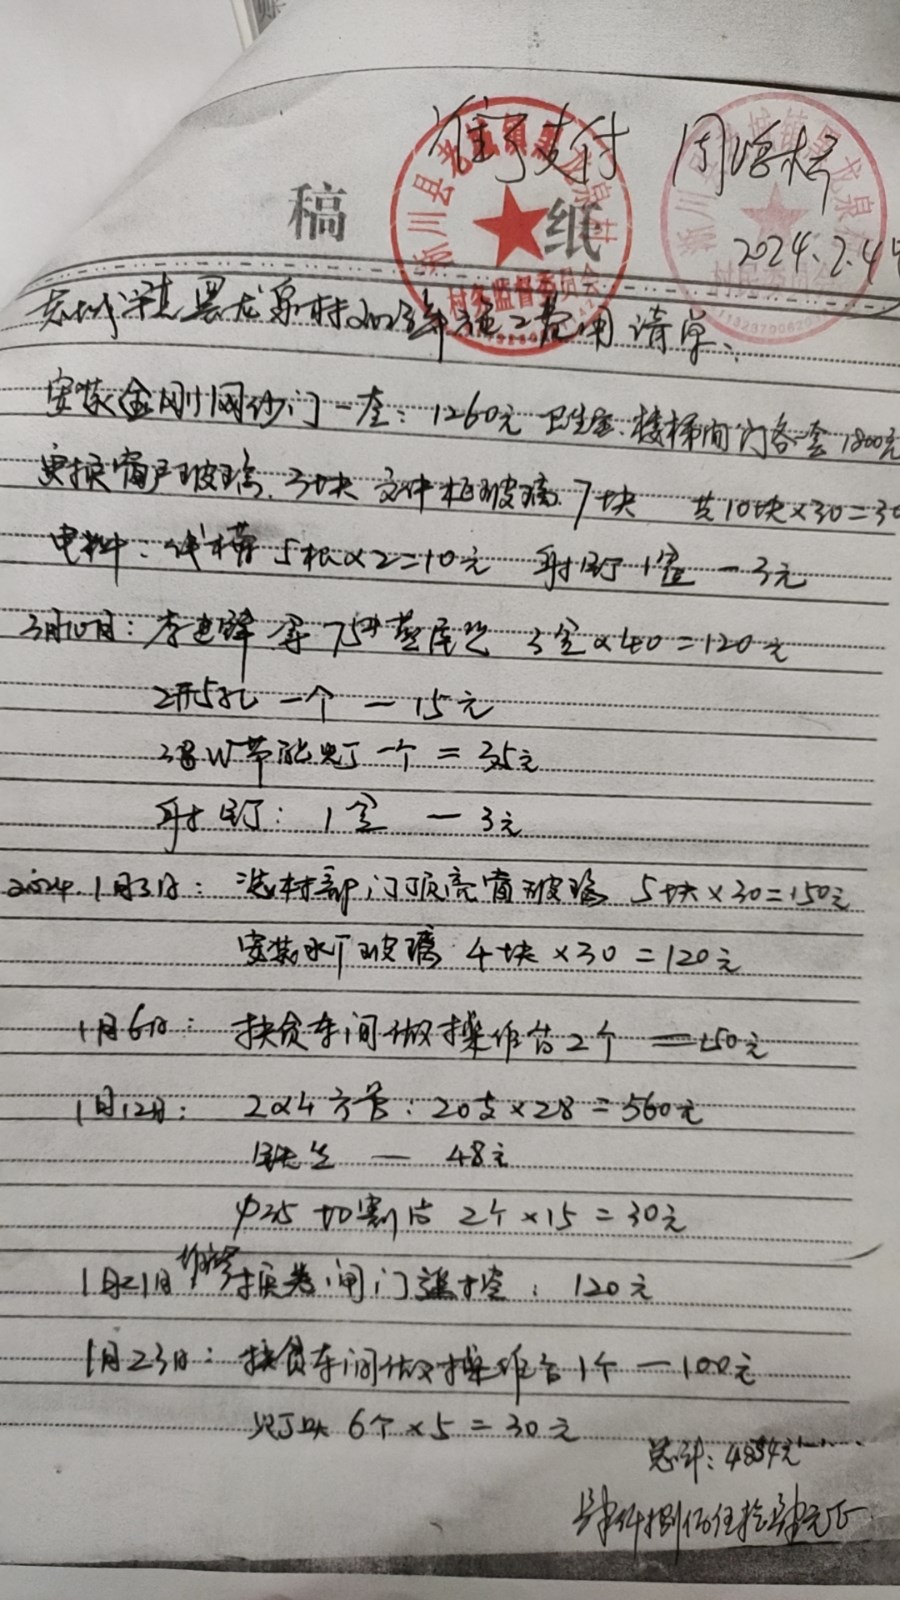 准予支付 周
稿 纸
2024.2.4
老城镇黑龙泉村2023年施工费用清单:
安装金刚网纱门一套:1260元 卫生室.楼梯间门各一套1800元
更换窗户玻璃.3块 文件柜玻璃7块 共10块×30=30
电料:线槽5根×2=10元 射钉1盒—3元
3月10日:李建 3×40=120元
2开5孔 一个 — 15元
W节能灯一个 = 35元
射钉: 1盒 — 3元
2024.1月3日: 村部门顶亮窗玻璃 5块×30=150元
安装水厂玻璃 4块×30=120元
1月6日: 扶贫车间做操作台2个 =150元
1月12日: 2×4方管: 20支×28=560元
— 48元
φ25切割片 2个×15=30元
1月21日 换卷闸门遥控: 120元
1月23日: 扶贫车间做操作台1个—100元
灯头 6个×5=30元
总计:4854元
肆仟捌佰伍拾肆元正